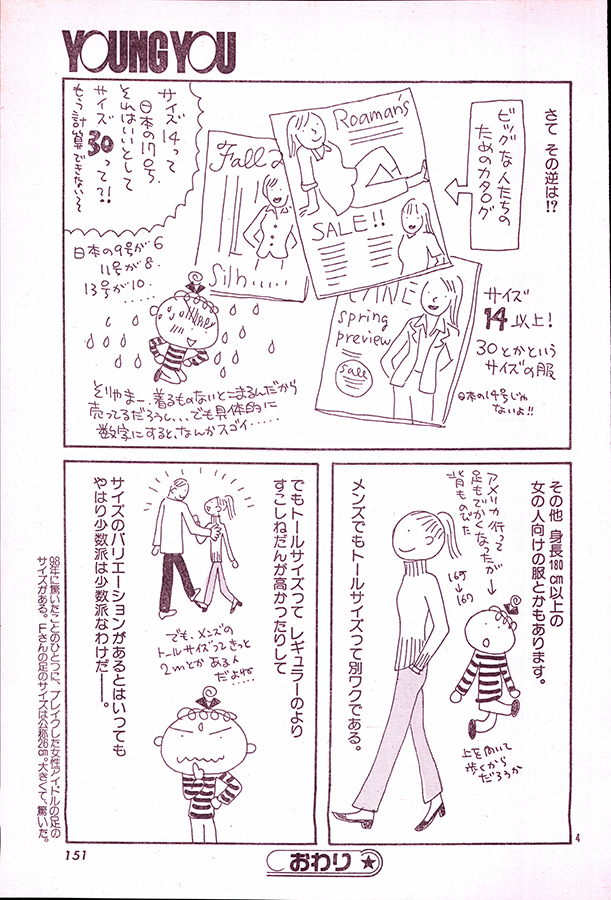 YOUNG YOU
さて その逆は!?
ビッグな人たちの
ためのカタログ
Roaman's
SALE!!
Fall 2
Silh......
spring
preview
sale
サイズ
14以上!
30とかという
サイズの服
日本の14号じゃ
ないよ!!
サイズ14って
日本の17号
それはいいとして
サイズ
30って?!
もう計算できない〜〜
日本の9号が6
11号が8.
13号が10.
......
そりゃまー、着るものないとこまるんだから
売ってるだろうし、、、でも具体的に
数字にすると、なんかスゴイ......
その他 身長180cm以上の
女の人向けの服とかもあります。
アメリカ行って
足もでかくなったが
背ものびた
165
→167
上を向いて
歩くから
だろうか
メンズでもトールサイズって別ワクである。
でもトールサイズって レギュラーのより
すこしねだんが高かったりして
でも、メンズの
トールサイズってきっと
2mとか ある人
だよね...
サイズのバリエーションがあるとはいっても
やはり少数派は少数派なわけだ――。
98年に驚いたことのひとつに、ブレイクした女性アイドルの足の
サイズがある。Fさんの足のサイズは公称26cm。大きくて、驚いた。
4
151
おわり